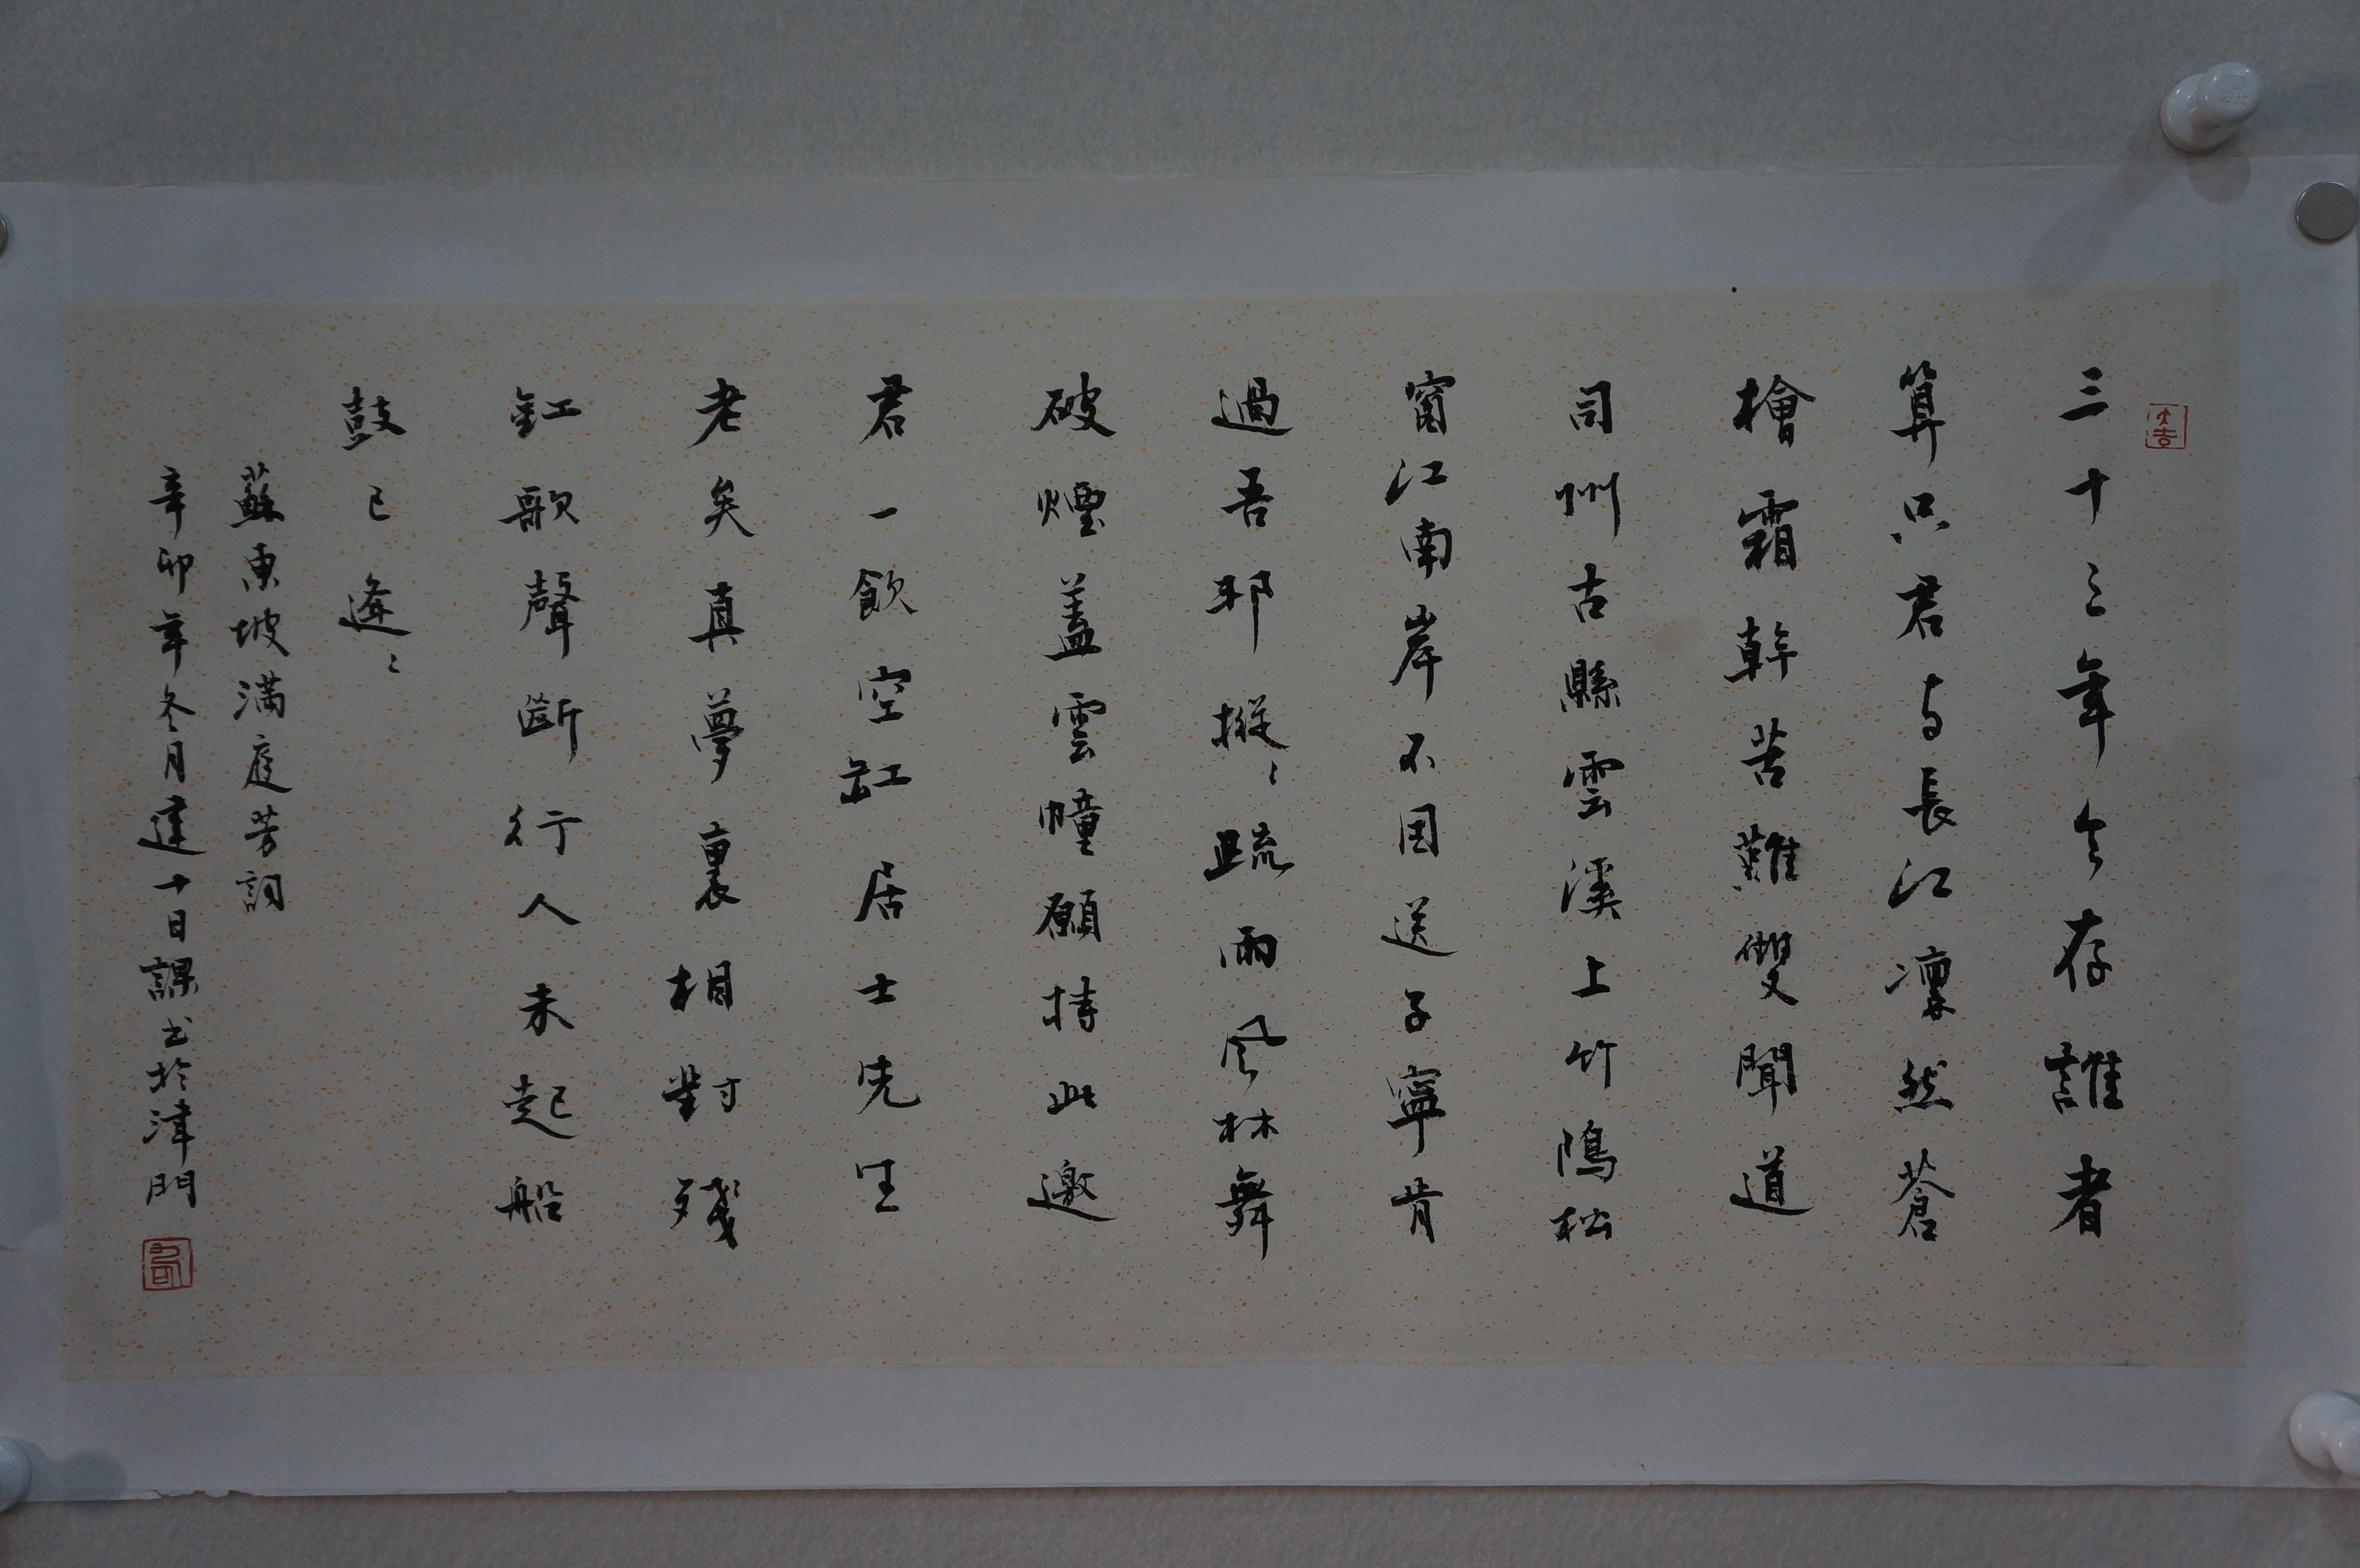 大吉
三十三年今存誰者
算只君与長江凛然蒼
檜霜幹苦難雙聞道
司州古縣雲溪上竹隝松
窗江南岸不因送子寧肯
過吾邦摐〻疏雨風林舞
破煙蓋雲幢願持此邀
君一飲空缸居士先生
老矣真夢裏相對殘
釭歌聲斷行人未起船
鼓已逢〻
蘇東坡滿庭芳詞
辛卯年冬月建十日課书於津門